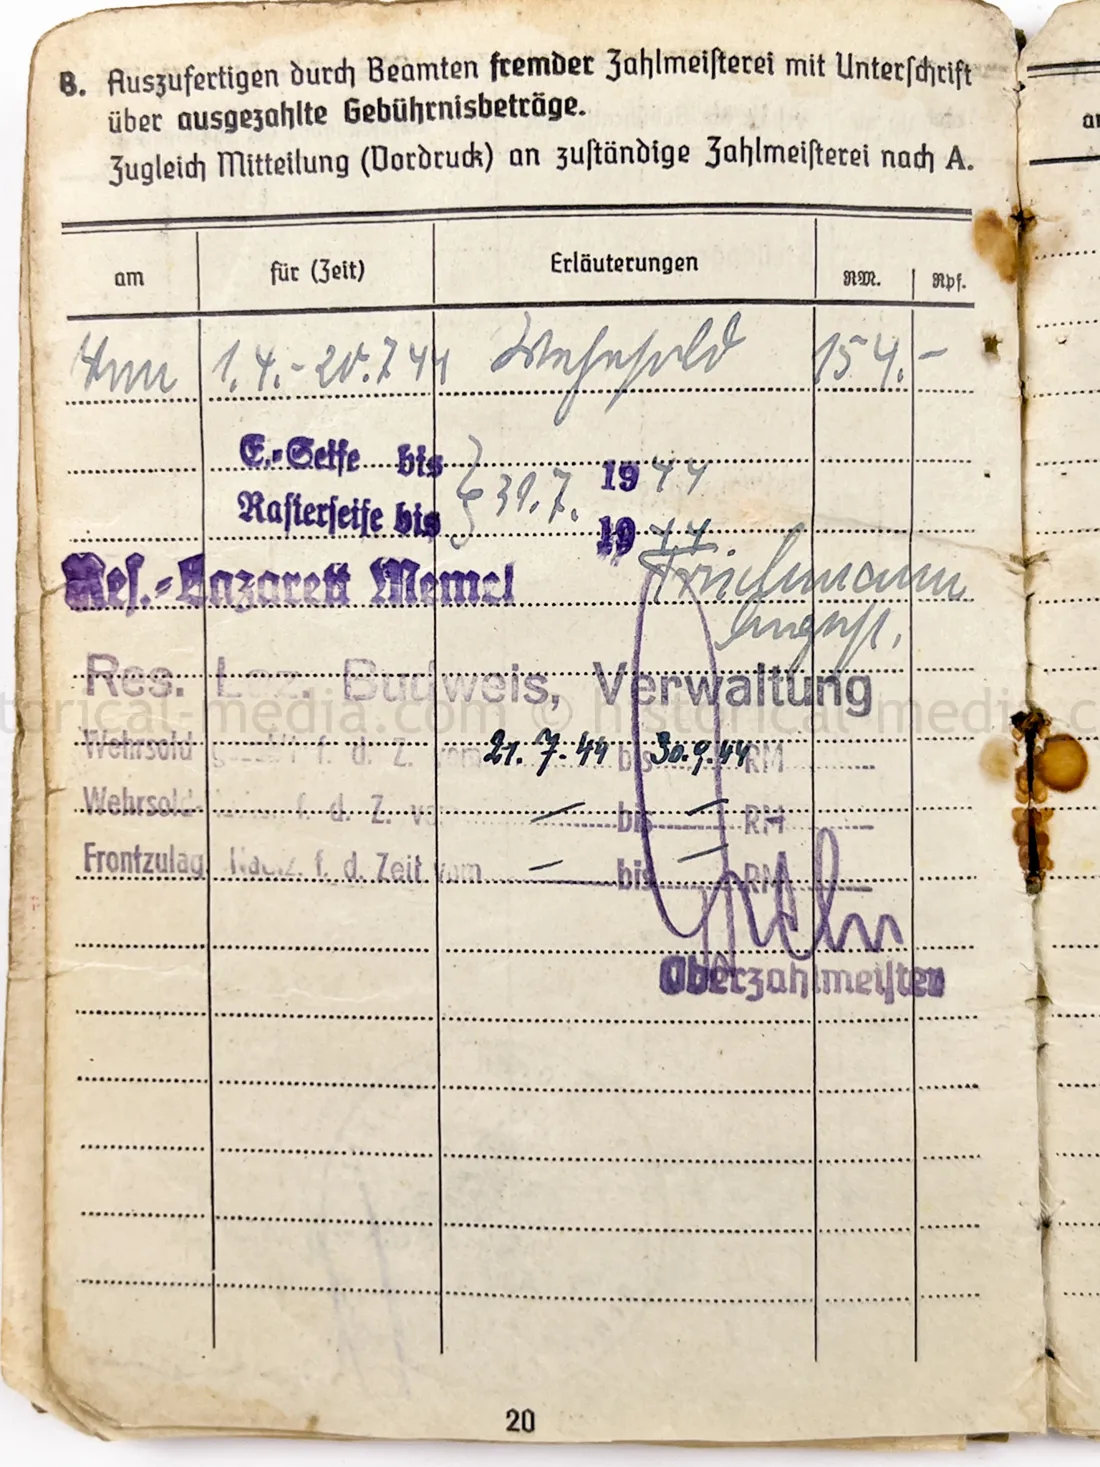 B. Auszufertigen durch Beamten fremder Zahlmeisterei mit Unterschrift
über ausgezahlte Gebührnisbeträge.
Zugleich Mitteilung (Vordruck) an zuständige Zahlmeisterei nach A.
am für (Zeit) Erläuterungen RM. Rpf.
1.4.-20.7.44 Wehrsold 154.-
E.-Seife bis 31.7. 1944
Rasierseife bis 1944
Res.-Lazarett Memel
Angest.
Res. Laz. Budweis, Verwaltung
historical-media.com © historical-media.c
Wehrsold f. d. Z. vom 21.7.44 bis 30.9.44 RM
Wehrsold f. d. Z. vom — bis — RM
Frontzulag f. d. Zeit vom — bis — RM
Oberzahlmeister
20